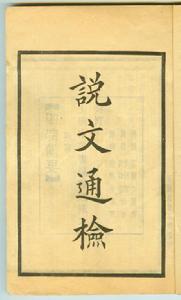 說文通檢